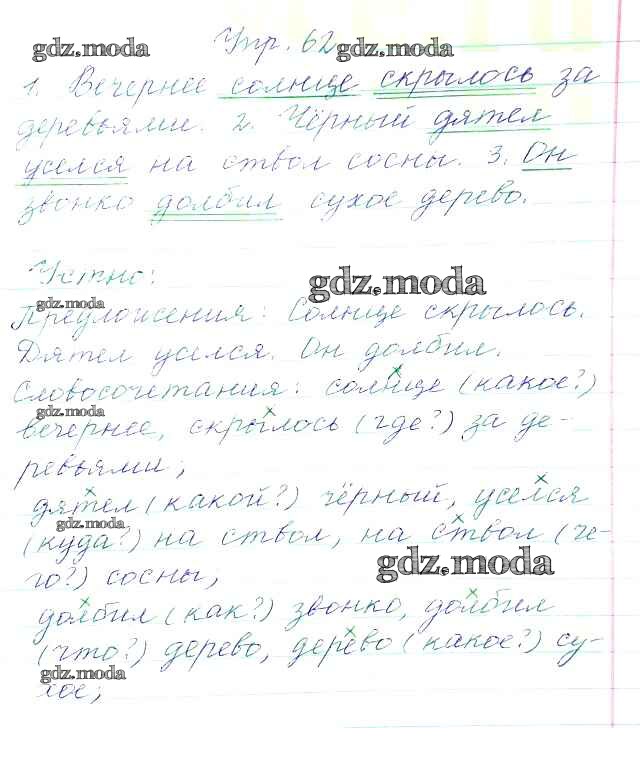 gdz.moda Упр. 62 gdz.moda
1. Вечернее солнце скрылось за
деревьями. 2. Чёрный дятел
уселся на ствол сосны. 3. Он
звонко долбил сухое дерево.
Устно:
gdz.moda
gdz.moda
Предложения: Солнце скрылось.
Дятел уселся. Он долбил.
Словосочетания: солнце (какое?)
gdz.moda
вечернее, скрылось (где?) за де-
ревьями;
дятел (какой?) чёрный, уселся
gdz.moda
(куда?) на ствол, на ствол (че-
го?) сосны;
gdz.moda
долбил (как?) звонко, долбил
(что?) дерево, дерево (какое?) су-
gdz.moda
хое;
gdz.moda